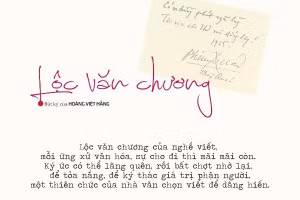 1985.
Lộc văn chương
Bút ký của HOÀNG VIỆT HẰNG
Lộc văn chương của nghề viết,
mỗi ứng xử văn hóa, sự cho đi thì mãi mãi còn.
Ký ức có thể lãng quên, rồi bất chợt nhớ lại,
để tỏa nắng, để ký thác giá trị phận người,
một thiên chức của nhà văn chọn viết để dâng hiến.